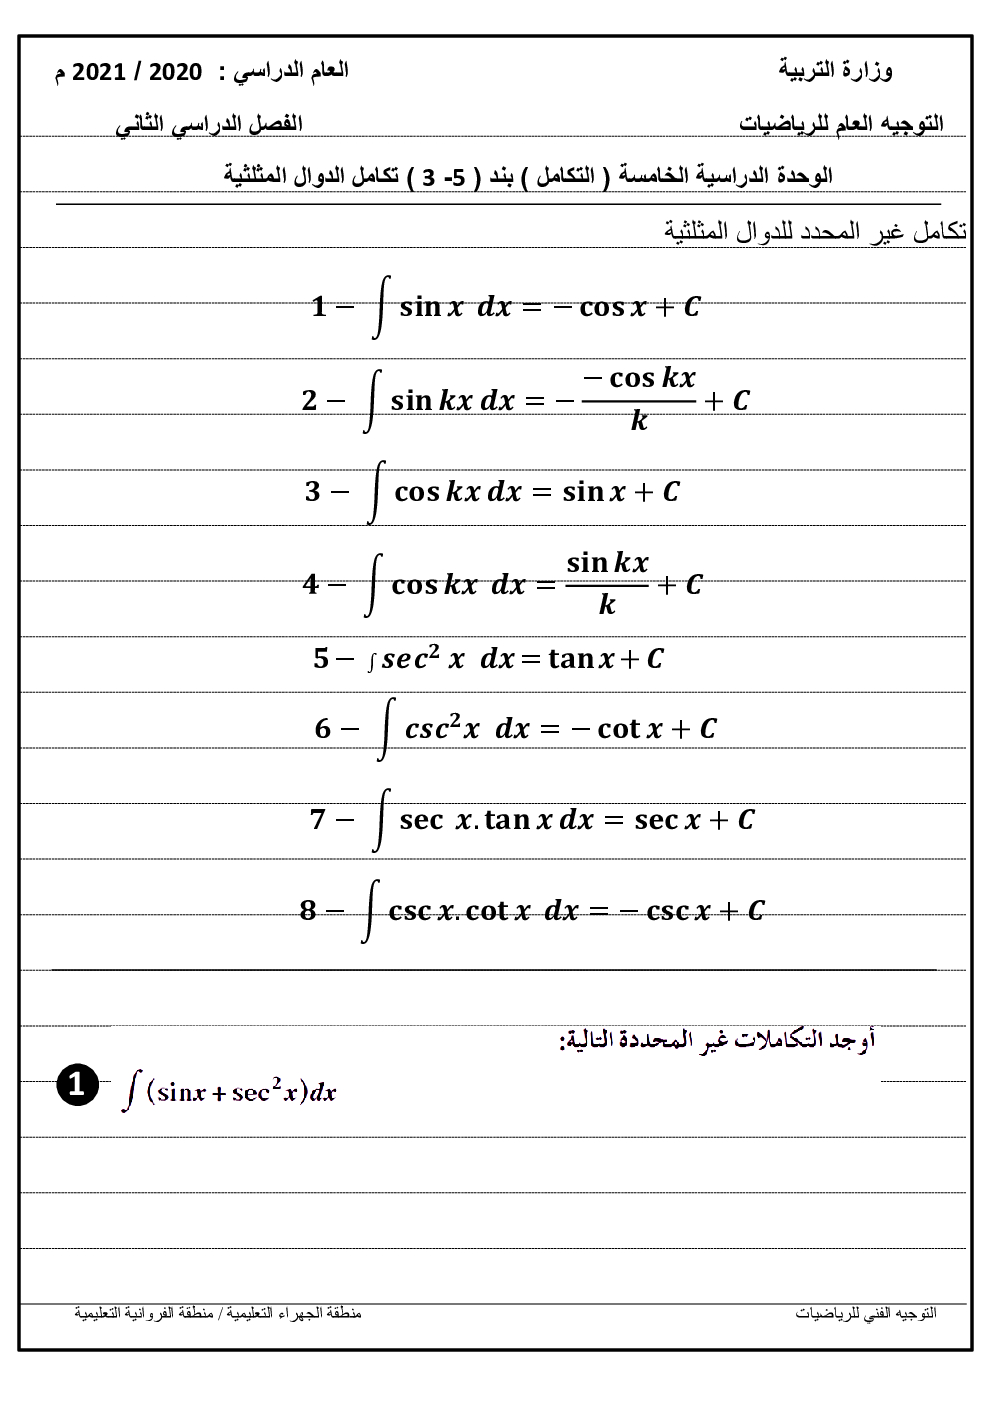 وزارة التربية العام الدراسي : 2020 / 2021 م
التوجيه العام للرياضيات الفصل الدراسي الثاني
الوحدة الدراسية الخامسة ( التكامل ) بند ( 5- 3 ) تكامل الدوال المثلثية
تكامل غير المحدد للدوال المثلثية
1 − ∫ sin x dx = − cos x + C
2 − ∫ sin kx dx = − (− cos kx)/k + C
3 − ∫ cos kx dx = sin x + C
4 − ∫ cos kx dx = (sin kx)/k + C
5 − ∫ sec² x dx = tan x + C
6 − ∫ csc²x dx = − cot x + C
7 − ∫ sec x. tan x dx = sec x + C
8 − ∫ csc x. cot x dx = − csc x + C
أوجد التكاملات غير المحددة التالية:
1 ∫ (sinx + sec²x)dx
التوجيه الفني للرياضيات منطقة الجهراء التعليمية / منطقة الفروانية التعليمية